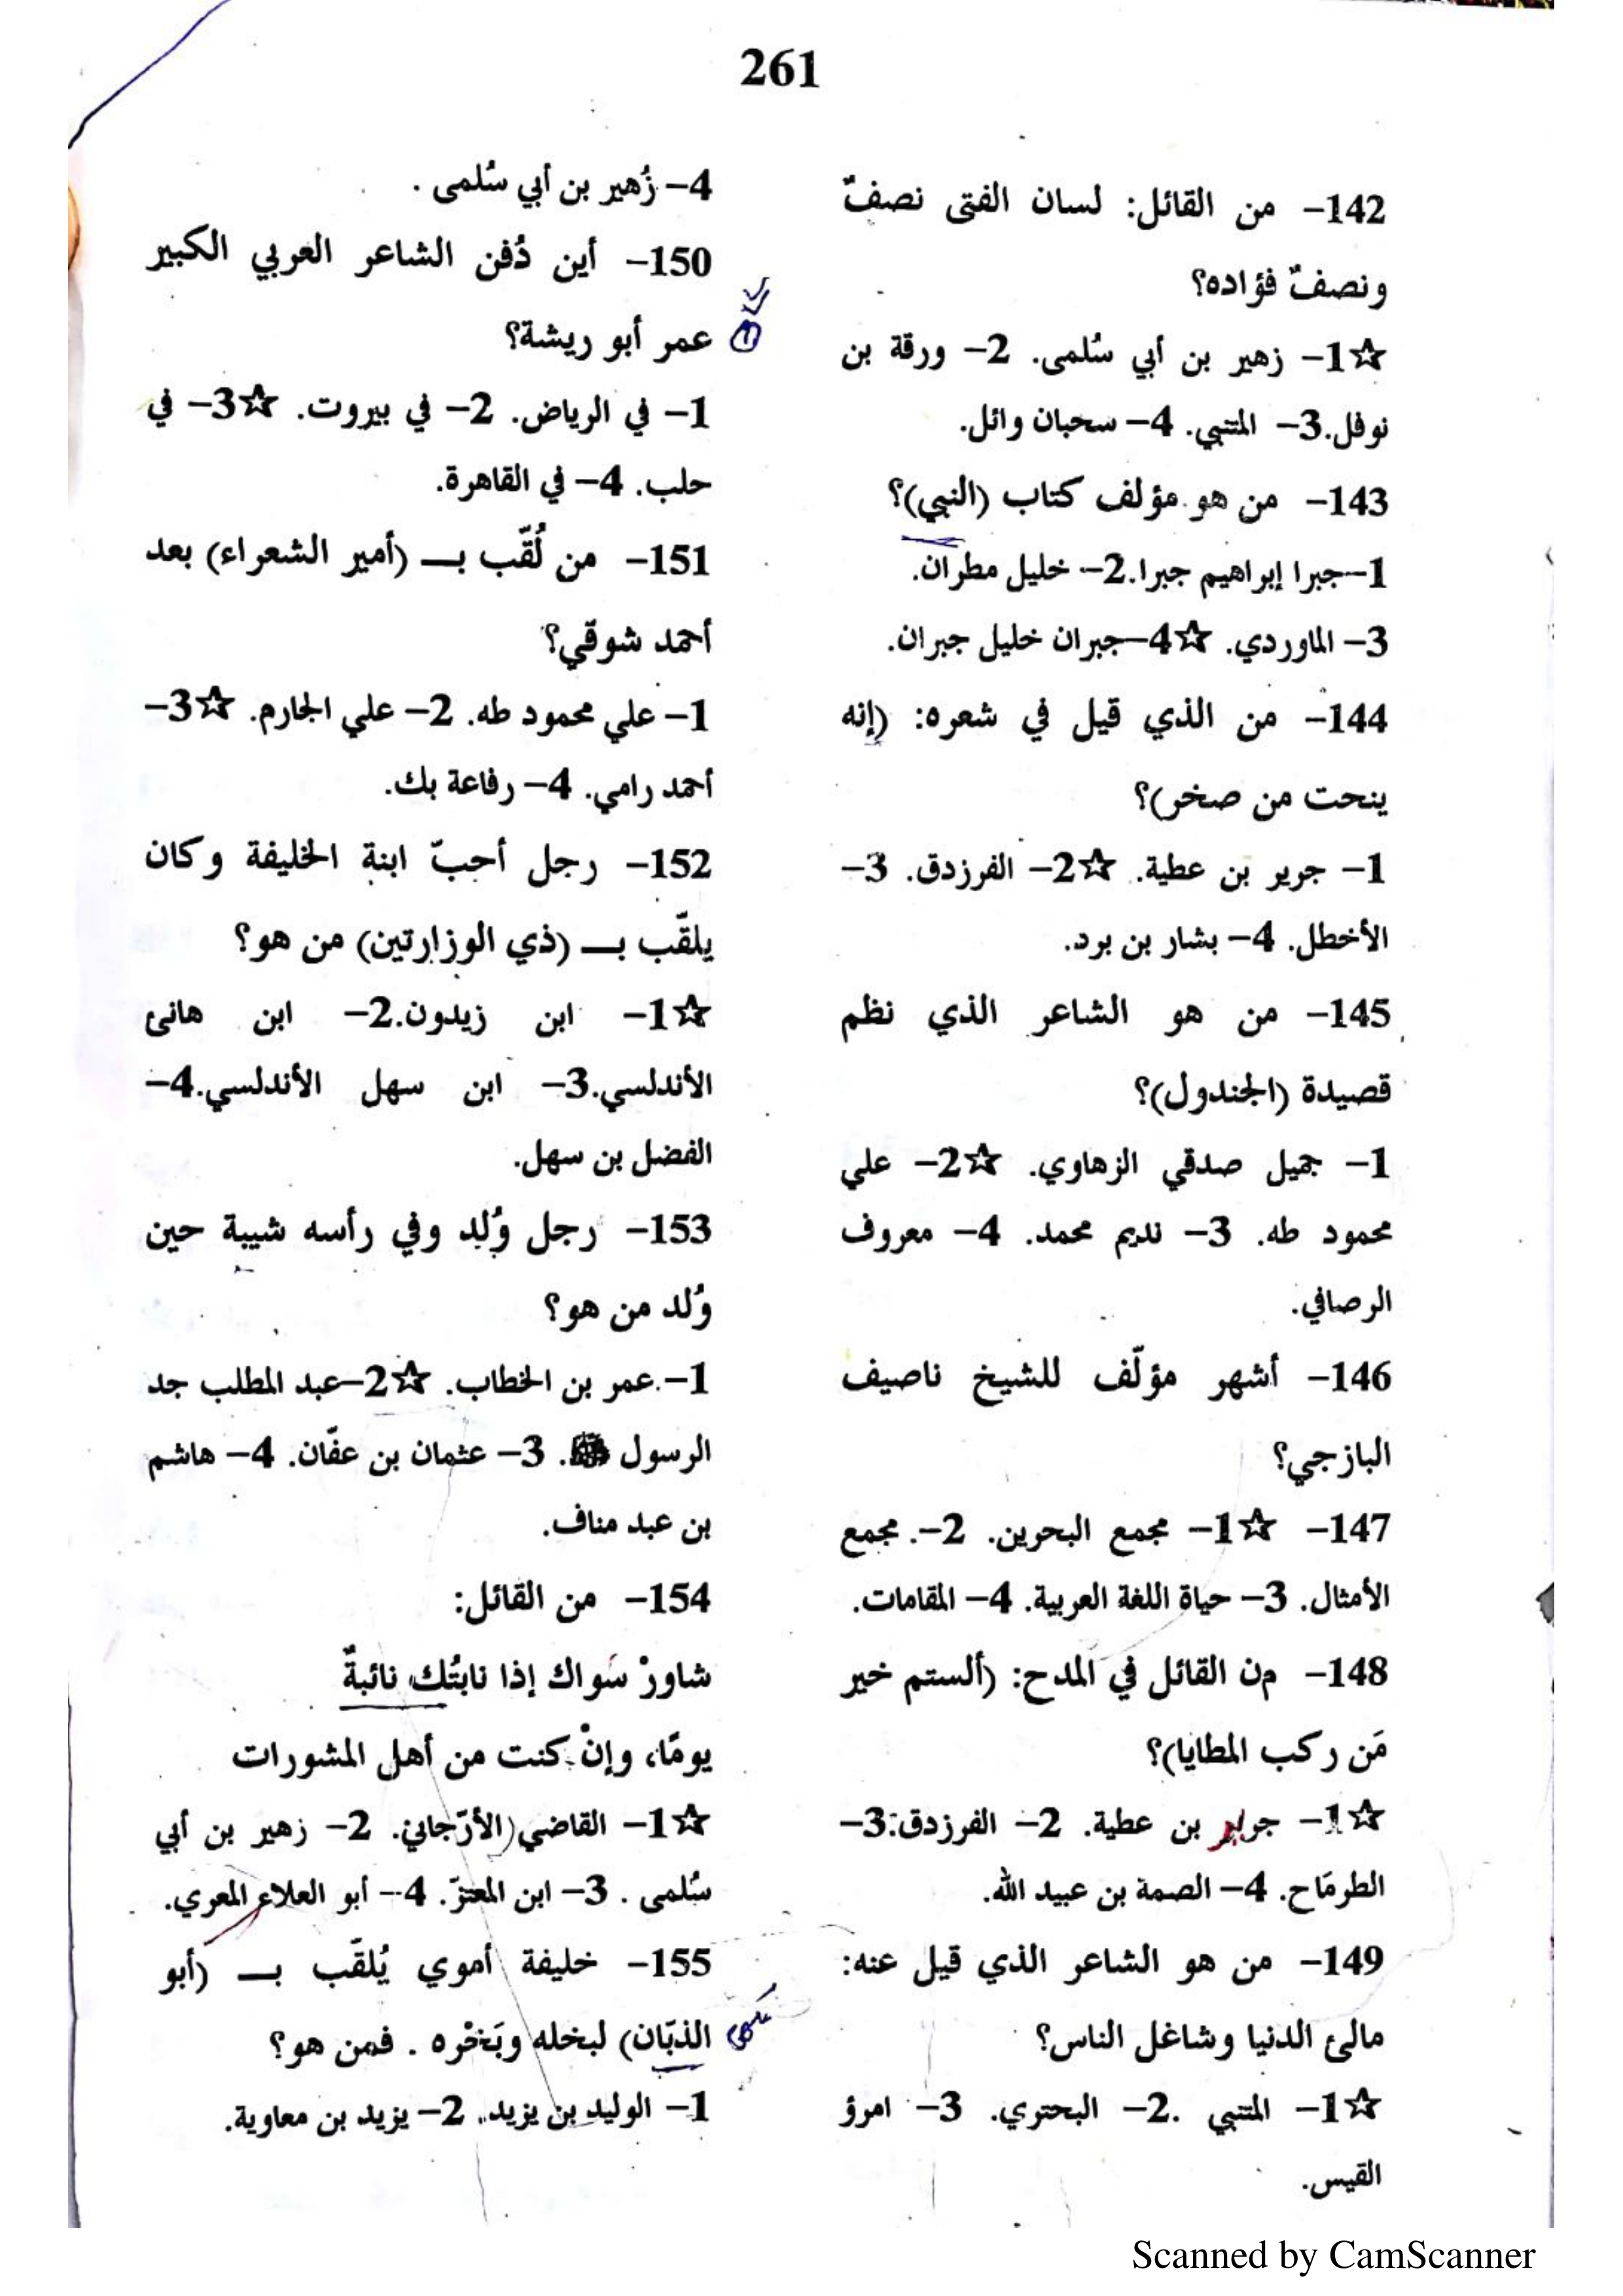 261
142- من القائل: لسان الفتى نصفٌ
ونصفٌ فؤاده؟
☆1- زهير بن أبي سُلمى. 2- ورقة بن
نوفل.3- المتنبي. 4- سحبان وائل.
143- من هو مؤلف كتاب (النبي)؟
1-جبرا إبراهيم جبرا.2- خليل مطران.
3- الماوردي. ☆4-جبران خليل جبران.
144- من الذي قيل في شعره: (إنه
ينحت من صخر)؟
1- جرير بن عطية. ☆2- الفرزدق. 3-
الأخطل. 4- بشار بن برد.
145- من هو الشاعر الذي نظم
قصيدة (الجندول)؟
1- جميل صدقي الزهاوي. ☆2- علي
محمود طه. 3- نديم محمد. 4- معروف
الرصافي.
146- أشهر مؤلّف للشيخ ناصيف
البازجي؟
147- ☆1- مجمع البحرين. 2-. مجمع
الأمثال. 3- حياة اللغة العربية. 4- المقامات.
148- من القائل في المدح: (ألستم خير
مَن ركب المطايا)؟
☆1- جرير بن عطية. 2- الفرزدق.3-
الطرمّاح. 4- الصمة بن عبيد الله.
149- من هو الشاعر الذي قيل عنه:
مالئ الدنيا وشاغل الناس؟
☆1- المتنبي .2- البحتري. 3- امرؤ
القيس.
4- زُهير بن أبي سُلمى .
150- أين دُفن الشاعر العربي الكبير
عمر أبو ريشة؟
1- في الرياض. 2- في بيروت. ☆3- في
حلب. 4- في القاهرة.
151- من لُقّب بـ (أمير الشعراء) بعد
أحمد شوقي؟
1- علي محمود طه. 2- علي الجارم. ☆3-
أحمد رامي. 4- رفاعة بك.
152- رجل أحبّ ابنة الخليفة وكان
يلقّب بـ (ذي الوزارتين) من هو؟
☆1- ابن زيدون.2- ابن هانئ
الأندلسي.3- ابن سهل الأندلسي.4-
الفضل بن سهل.
153- رجل وُلِد وفي رأسه شيبة حين
وُلد من هو؟
1-.عمر بن الخطاب. ☆2-عبد المطلب جد
الرسول ﷺ. 3- عثمان بن عفّان. 4- هاشم
بن عبد مناف.
154- من القائل:
شاورْ سَواك إذا نابتُك نائبةٌ
يومًا، وإنْ كنت من أهل المشورات
☆1- القاضي (الأرّجاني. 2- زهير بن أبي
سُلمى . 3- ابن المعتزّ. 4- أبو العلاء المعري.
155- خليفة أموي يُلقّب بـ (أبو
الذبّان) لبخله وبَخْره . فمن هو؟
1- الوليد بن يزيد. 2- يزيد بن معاوية.
Scanned by CamScanner